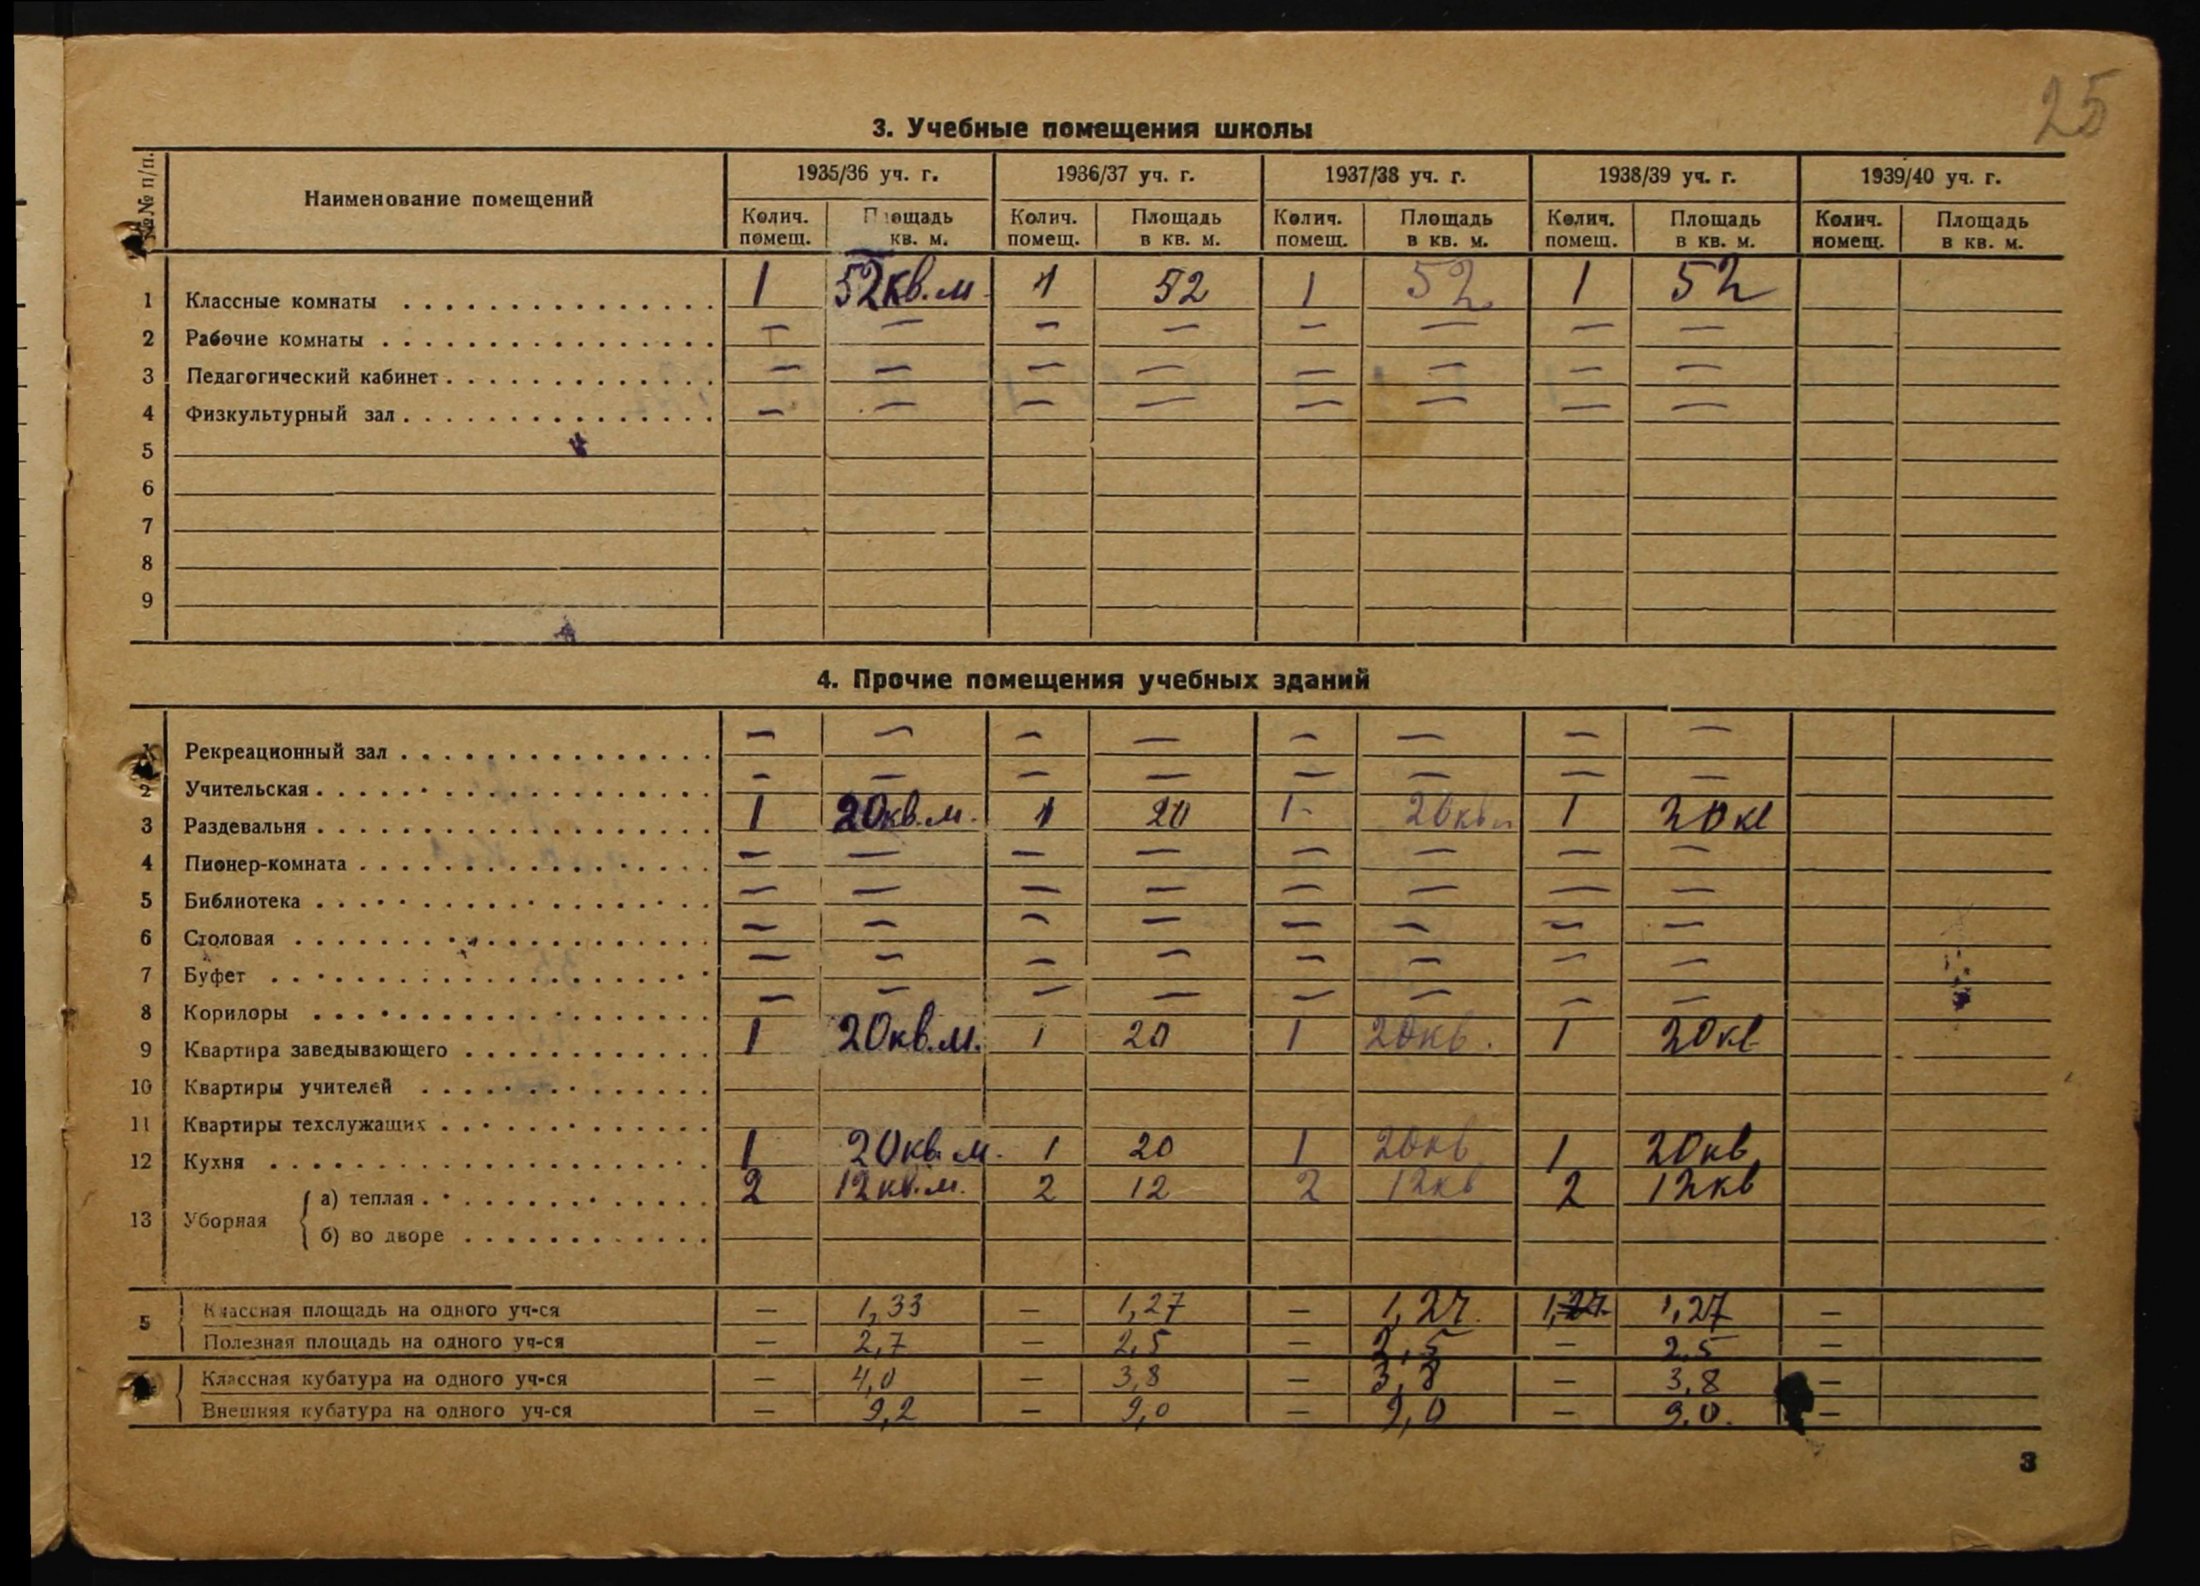 25
3. Учебные помещения школы
№№ п/п. Наименование помещений 1935/36 уч. г. 1936/37 уч. г. 1937/38 уч. г. 1938/39 уч. г. 1939/40 уч. г.
Колич. помещ. Площадь кв. м. Колич. помещ. Площадь в кв. м. Колич. помещ. Площадь в кв. м. Колич. помещ. Площадь в кв. м. Колич. помещ. Площадь в кв. м.
1 Классные комнаты 1 52кв.м 1 52 1 52 1 52
2 Рабочие комнаты — — — — — — — —
3 Педагогический кабинет — — — — — — — —
4 Физкультурный зал — — — — — — — —
5
6
7
8
9
4. Прочие помещения учебных зданий
1 Рекреационный зал — — — — — — — —
2 Учительская — — — — — — — —
3 Раздевальня 1 20кв.м. 1 20 1- 20кв 1 20кв
4 Пионер-комната — — — — — — — —
5 Библиотека — — — — — — — —
6 Столовая — — — — — — — —
7 Буфет — — — — — — — —
8 Коридоры — — — — — — — —
9 Квартира заведывающего 1 20кв.м. 1 20 1 20кв. 1 20кв
10 Квартиры учителей
11 Квартиры техслужащих
12 Кухня 1 20кв.м. 1 20 1 20кв 1 20кв
13 Уборная а) теплая 2 12кв.м. 2 12 2 12кв 2 12кв
б) во дворе
5 Классная площадь на одного уч-ся — 1,33 — 1,27 — 1,27. 1,27. 1,27 —
Полезная площадь на одного уч-ся — 2,7 — 2,5 — 2,5 — 2,5 —
Классная кубатура на одного уч-ся — 4,0 — 3,8 — 3,8 — 3,8 —
Внешняя кубатура на одного уч-ся — 9,2 — 9,0 — 9,0 — 9,0. —
3